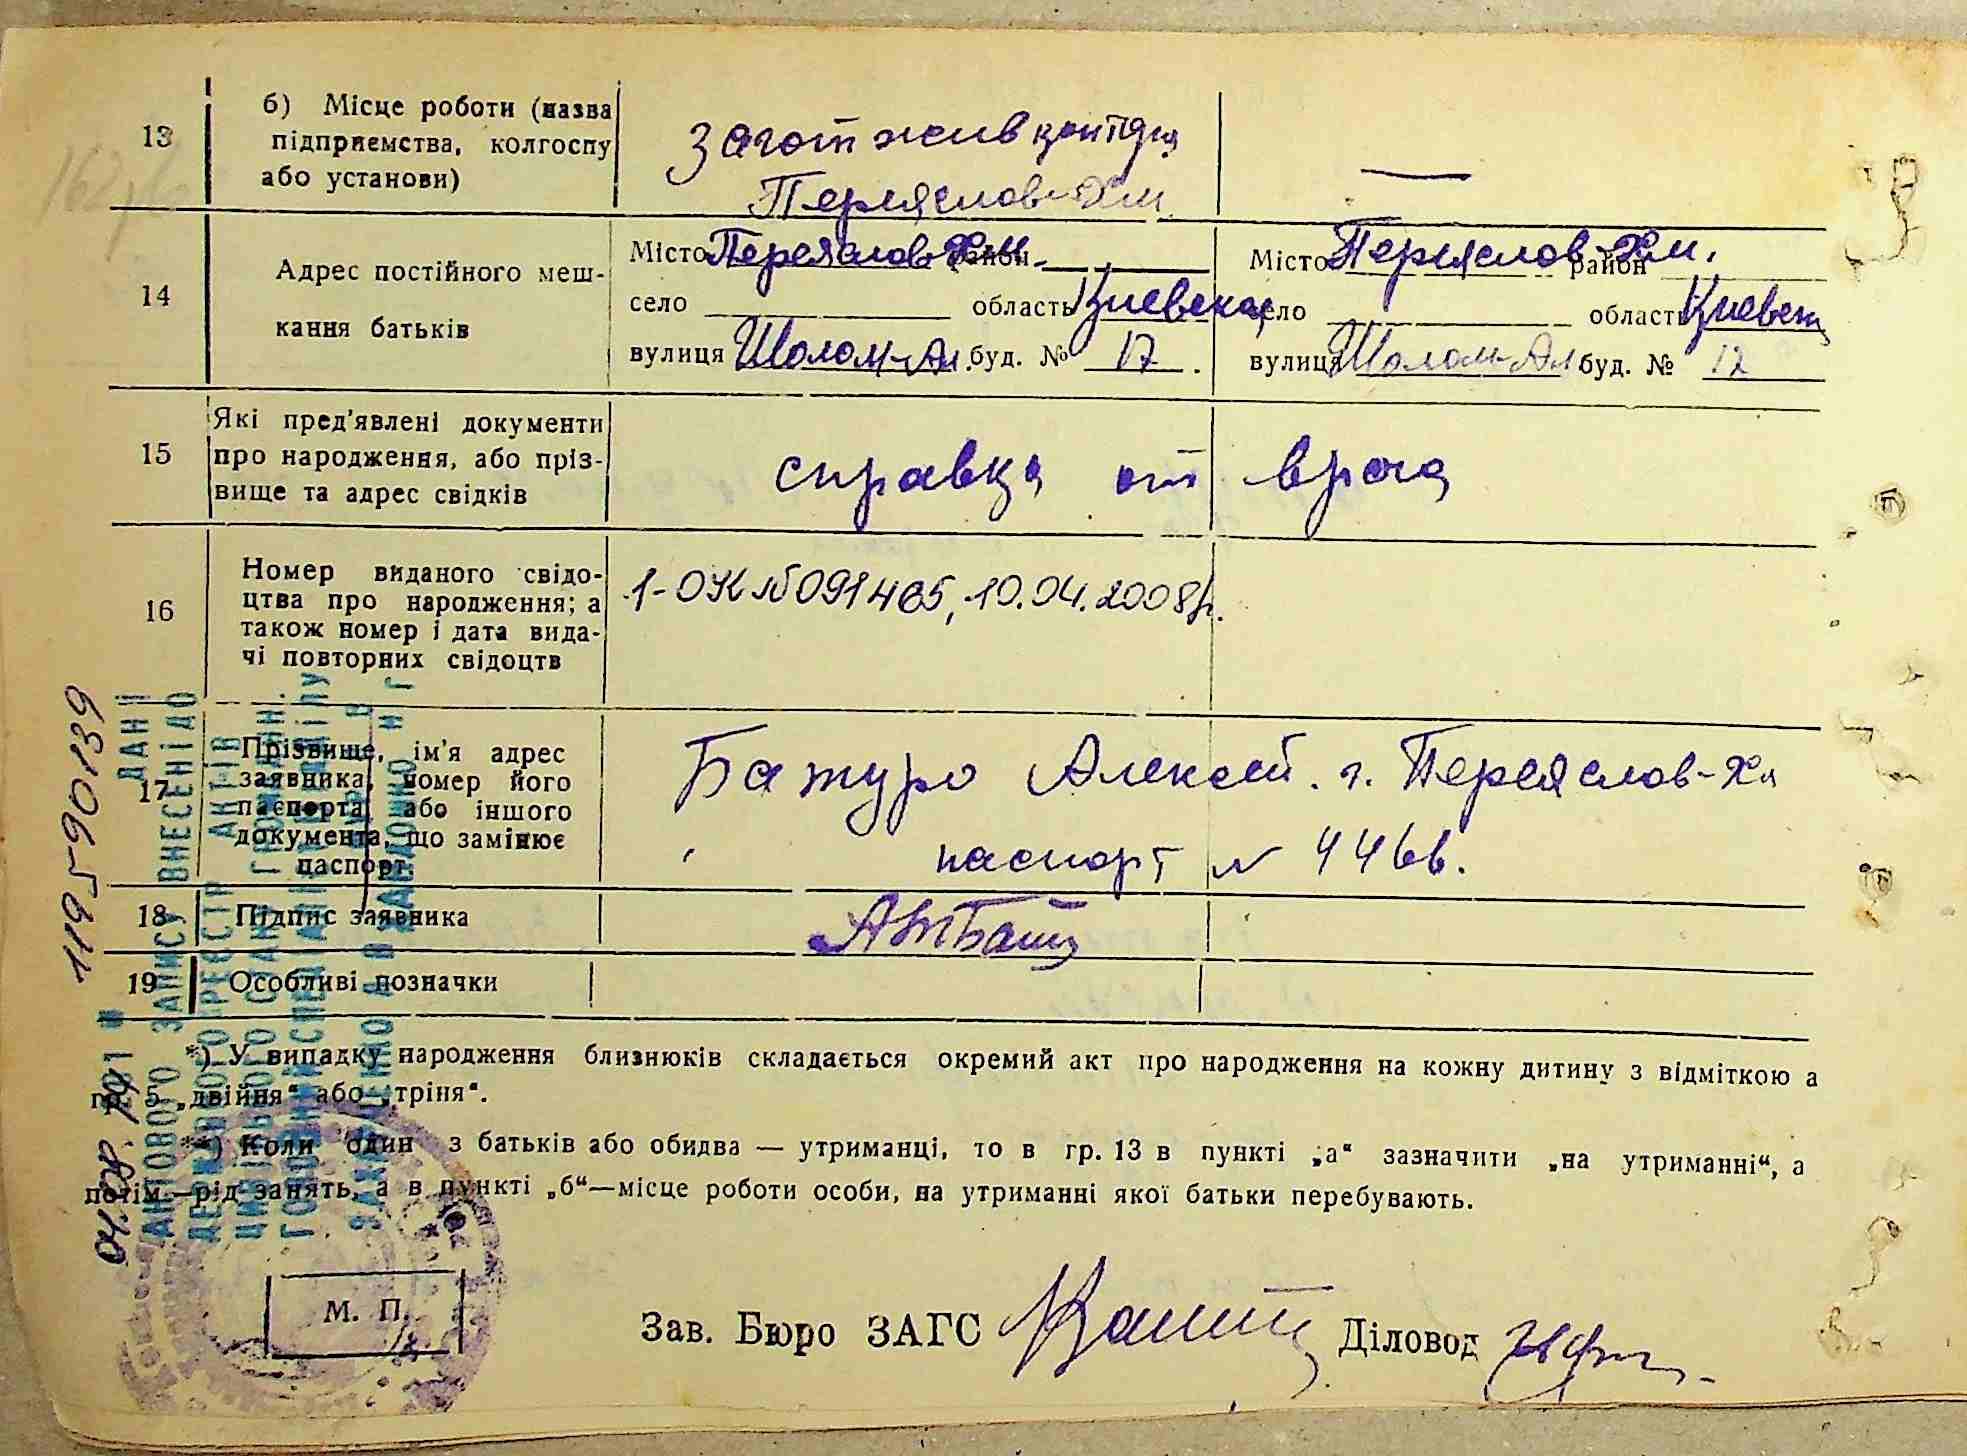 13
б) Місце роботи (назва
підприємства, колгоспу
або установи)
Загот жив контора
Переяслов-Хм.
—
14
Адрес постійного меш-
кання батьків
Місто Переяслов-Хм. район
село область Киевская
вулиця Шолом-Ал. буд. № 17.
Місто Переяслов-Хм. район
село область Киевск
вулиця Шолом-Ал буд. № 12
15
Які пред'явлені документи
про народження, або пріз-
вище та адрес свідків
справка от врача
16
Номер виданого свідо-
цтва про народження; а
також номер і дата вида-
чі повторних свідоцтв
1-ОК №091465, 10.04.2008р.
17
Прізвище, ім'я адрес
заявника, номер його
паспорта, або іншого
документа, що замінює
паспорт.
Батуро Алексей. г. Переяслов-Хм
паспорт № 4466.
18
Підпис заявника
19
Особливі позначки
*) У випадку народження близнюків складається окремий акт про народження на кожну дитину з відміткою а
гр. 5 „двійня“ або „тріня“.
**) Коли один з батьків або обидва — утриманці, то в гр. 13 в пункті „а“ зазначити „на утриманні“, а
потім—рід занять, а в пункті „б“—місце роботи особи, на утриманні якої батьки перебувають.
М. П.
Зав. Бюро ЗАГС
Діловод
1195590139
ДАНІ
АКТОВОГО ЗАПИСУ ВНЕСЕНІ ДО
ДЕРЖАВНОГО РЕЄСТР АКТІВ
ЦИВІЛЬНОГО СТАНУ ГРОМАДЯН.